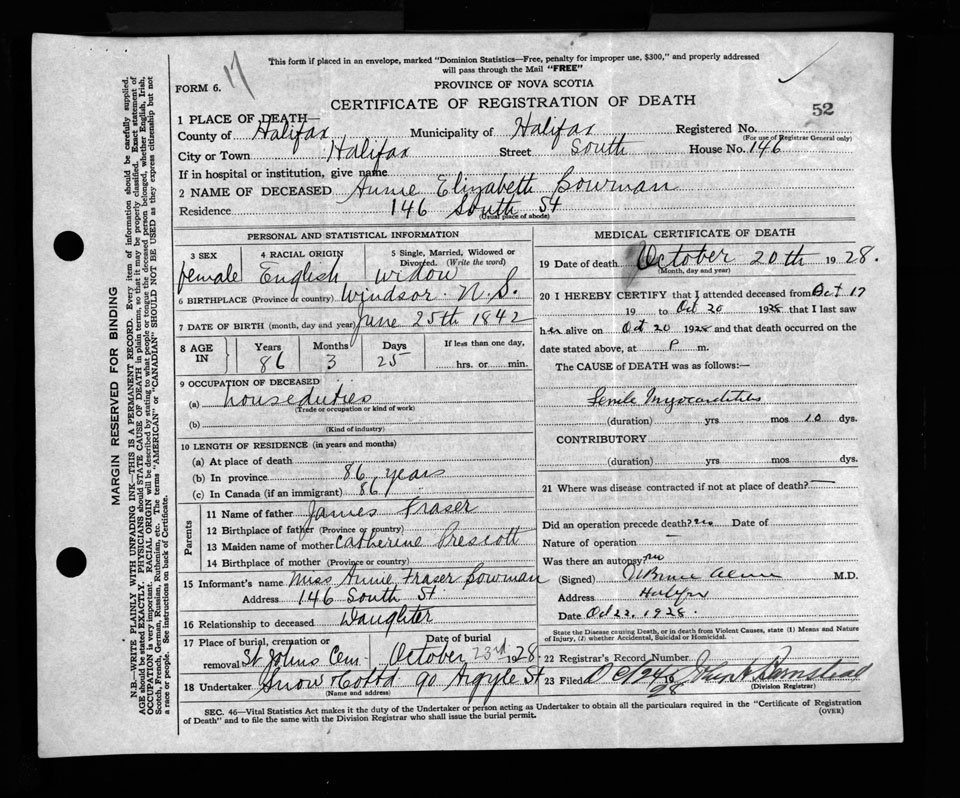 This form if placed in an envelope, marked "Dominion Statistics—Free, penalty for improper use, $300," and properly addressed
will pass through the Mail "FREE"
FORM 6. 17
PROVINCE OF NOVA SCOTIA
CERTIFICATE OF REGISTRATION OF DEATH
52
1 PLACE OF DEATH—
County of Halifax Municipality of Halifax Registered No.
(For use of Registrar General only)
City or Town Halifax Street South House No. 146
If in hospital or institution, give name
2 NAME OF DECEASED Annie Elizabeth Bowman
Residence 146 South St
(Usual place of abode)
PERSONAL AND STATISTICAL INFORMATION
3 SEX 4 RACIAL ORIGIN 5 Single, Married, Widowed or Divorced. (Write the word)
female English widow
6 BIRTHPLACE (Province or country) Windsor N.S.
7 DATE OF BIRTH (month, day and year) June 25th 1842
8 AGE IN Years Months Days If less than one day,
86 3 25 hrs. or min.
9 OCCUPATION OF DECEASED
(a) houseduties
(Trade or occupation or kind of work)
(b)
(Kind of industry)
10 LENGTH OF RESIDENCE (in years and months)
(a) At place of death
(b) In province 86 years
(c) In Canada (if an immigrant) 86
Parents
11 Name of father James Fraser
12 Birthplace of father (Province or country)
13 Maiden name of mother Catherine Prescott
14 Birthplace of mother (Province or country)
15 Informant's name Miss Annie Fraser Bowman
Address 146 South St.
16 Relationship to deceased Daughter
17 Place of burial, cremation or removal St Johns Cem. Date of burial October 23rd 1928
18 Undertaker Snow 90 Argyle St
(Name and address)
MEDICAL CERTIFICATE OF DEATH
19 Date of death October 20th 1928.
(Month, day and year)
20 I HEREBY CERTIFY that I attended deceased from Oct 17
19 to Oct 20 1928 that I last saw
her alive on Oct 20 1928 and that death occurred on the
date stated above, at P m.
The CAUSE OF DEATH was as follows:—
Senile Myocarditis
(duration) yrs mos 10 dys.
CONTRIBUTORY
(duration) yrs mos dys.
21 Where was disease contracted if not at place of death? —
Did an operation precede death? no Date of
Nature of operation —
Was there an autopsy? no
(Signed) M.D.
Address Halifax
Date Oct 22, 1928
State the Disease causing Death, or in death from Violent Causes, state (1) Means and Nature
of Injury, (2) whether Accidental, Suicidal or Homicidal.
22 Registrar's Record Number
23 Filed Oct 24 1928 John
(Division Registrar)
SEC. 46—Vital Statistics Act makes it the duty of the Undertaker or person acting as Undertaker to obtain all the particulars required in the "Certificate of Registration
of Death" and to file the same with the Division Registrar who shall issue the burial permit.
(OVER)
MARGIN RESERVED FOR BINDING
N.B.—WRITE PLAINLY WITH UNFADING INK—THIS IS A PERMANENT RECORD. Every item of information should be carefully supplied.
AGE should be stated EXACTLY. PHYSICIANS should STATE CAUSE OF DEATH in plain terms, so that it may be properly classified. Exact statement of
OCCUPATION is very important. RACIAL ORIGIN will be described by stating to what people or tongue the deceased person belonged, whether English, Irish,
Scotch, French, German, Russian, Ruthenian, etc. The terms "AMERICAN" or "CANADIAN" SHOULD NOT BE USED as they express citizenship but not
a race or people. See instructions on back of Certificate.